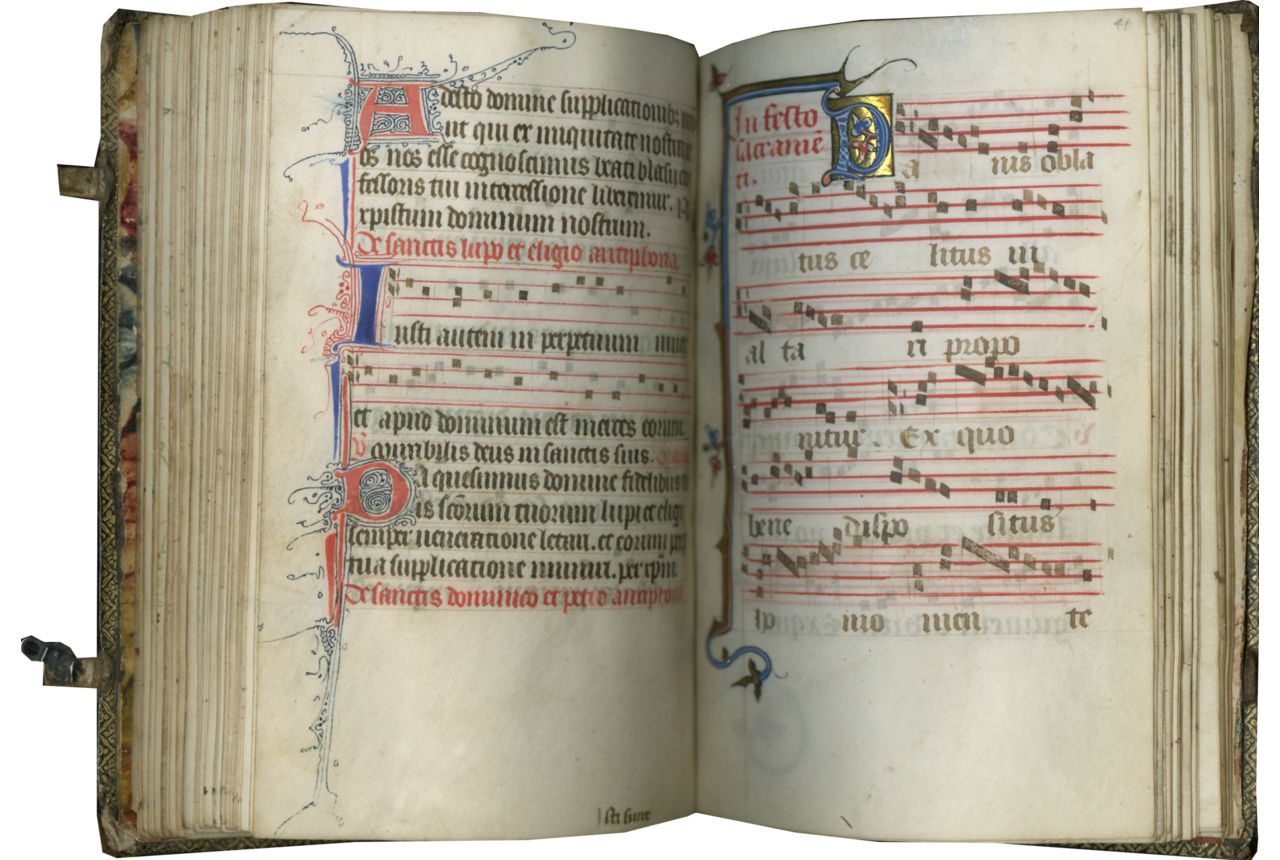 Adesto domine supplicationibz
ut qui ex iniquitate nostra
os nos esse cognoscimus beati blasij
fessoris tui intercessione liberemur.
xpistum dominum nostrum.
De sanctis lupo et eligio antiphona
Iusti autem in perpetuum
et apud dominum est merces eorum
mirabilis deus in sanctis suis.
Da quesumus domine fidelibus
is scorum tuorum lupi et eligij
semper ueneratione letari. et eorum
tua supplicatione muniri. per xpm
De sanctis dominico et petro antiphona
sti sunt
41
In festo
sacrame
ti.
Pa nis obla
tus ce litus in
al ta ri propo
nitur. Ex quo
bene dispo situs
ip mo men te